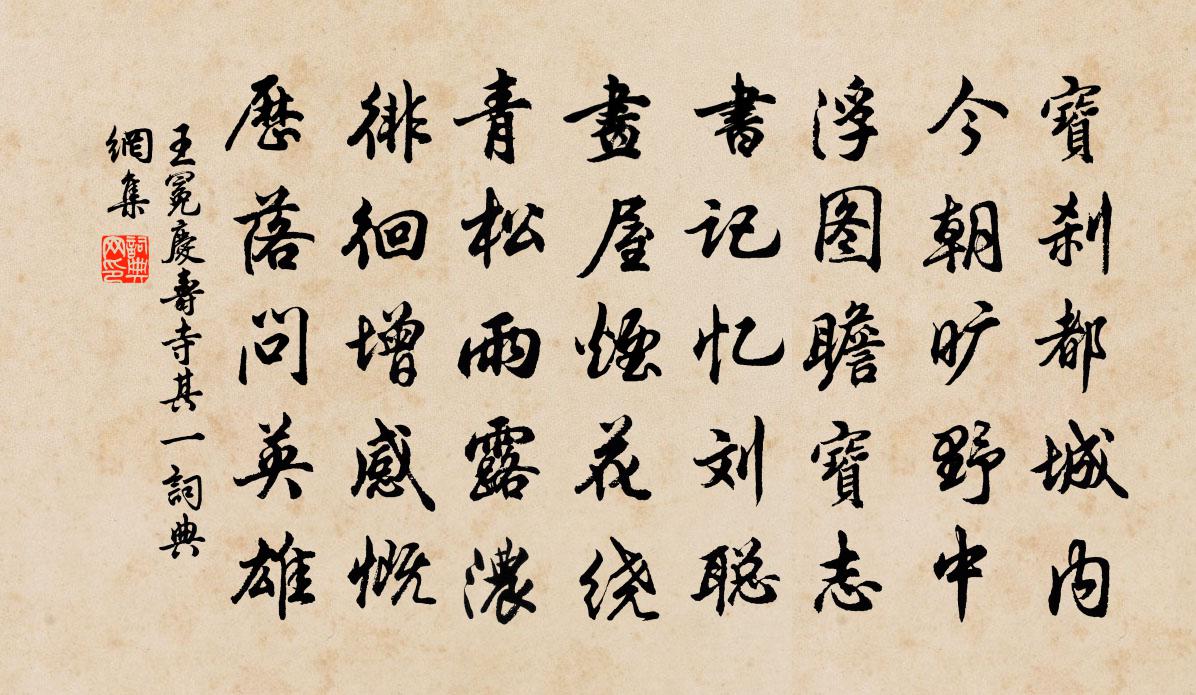 寶刹都城内
今朝旷野中
浮图瞻寶志
書记忆刘聪
畫屋煙花绕
青松雨露濃
徘徊增感慨
歷落问英雄
王冕慶壽寺其一詞典
網集
詞典
网印